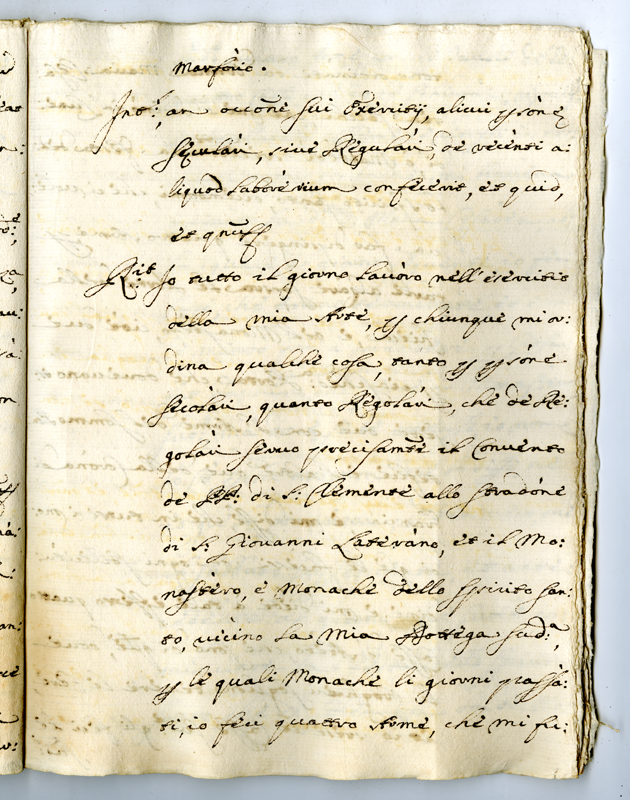 Marforio.
Int.s, an occone sui Exercitij, alicui psone
Seculari, sive Regulari, de recenti a:
liquod laborerium confecerit, et quid,
et qnus
R.it Io tutto il giorno lavoro nell'esercitio
della mia Arte, p chiunque mi or:
dina qualche cosa, tanto p psone
Secolari, quanto Regolari, che de Re:
golari servo precisamte il Convento
de PP. di S. Clemente allo stradone
di S. Giovanni Laterano, et il Mo:
nastero, e Monache dello Spirito San:
to, vicino la mia Bottega sud.a,
p le quali Monache li giorni passa:
ti, io feci quattro Arme, che mi fu: